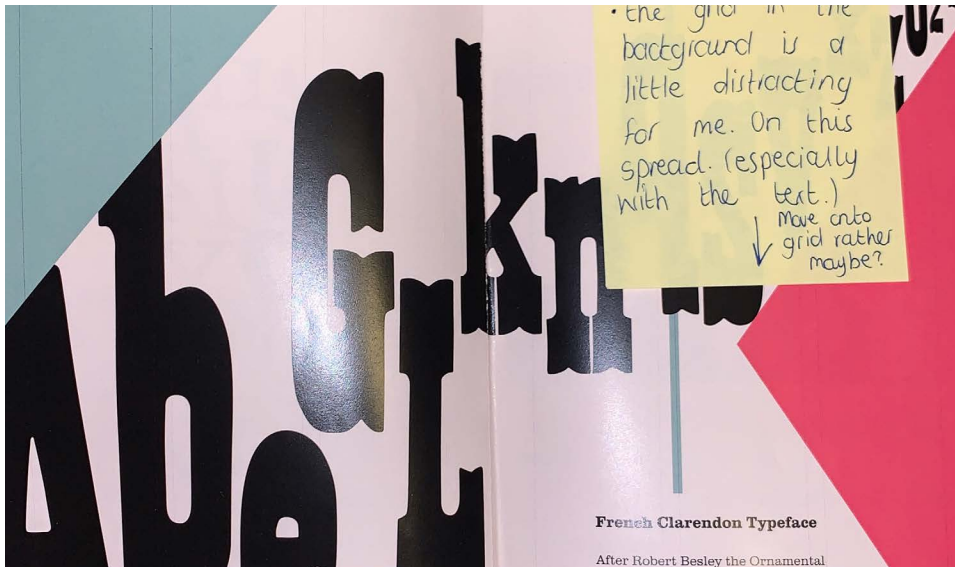 A b e G L k n
• the grid in the
background is a
little distracting
for me. On this
spread. (especially
with the text.)
Move onto
grid rather
maybe?
French Clarendon Typeface
After Robert Besley the Ornamental